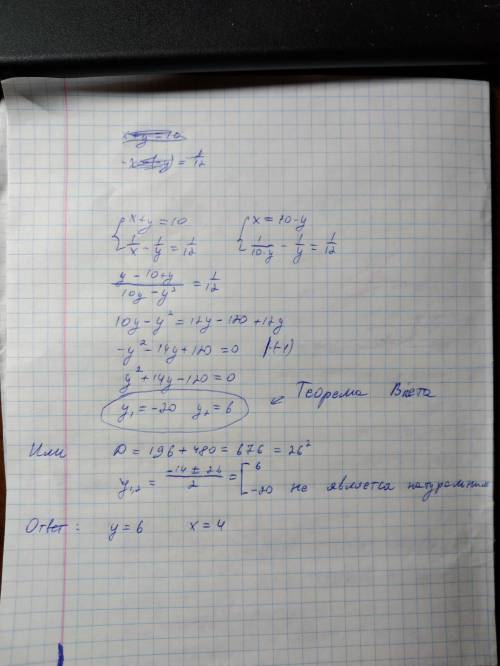 x+y=10
-x+y)=1/12
{ x+y=10   { x=10-y
{ 1/x - 1/y = 1/12   { 1/(10-y) - 1/y = 1/12
(y-10+y)/(10y-y²) = 1/12
10y-y²=12y-120+12y
-y²-14y+120=0   |·(-1)
y²+14y-120=0
y₁=-20   y₂=6   ↙ Теорема Виета
Или   D=196+480=676=26²
y₁,₂ = (-14±26)/2 = [ 6
-20 не является натуральным
Ответ: y=6   x=4